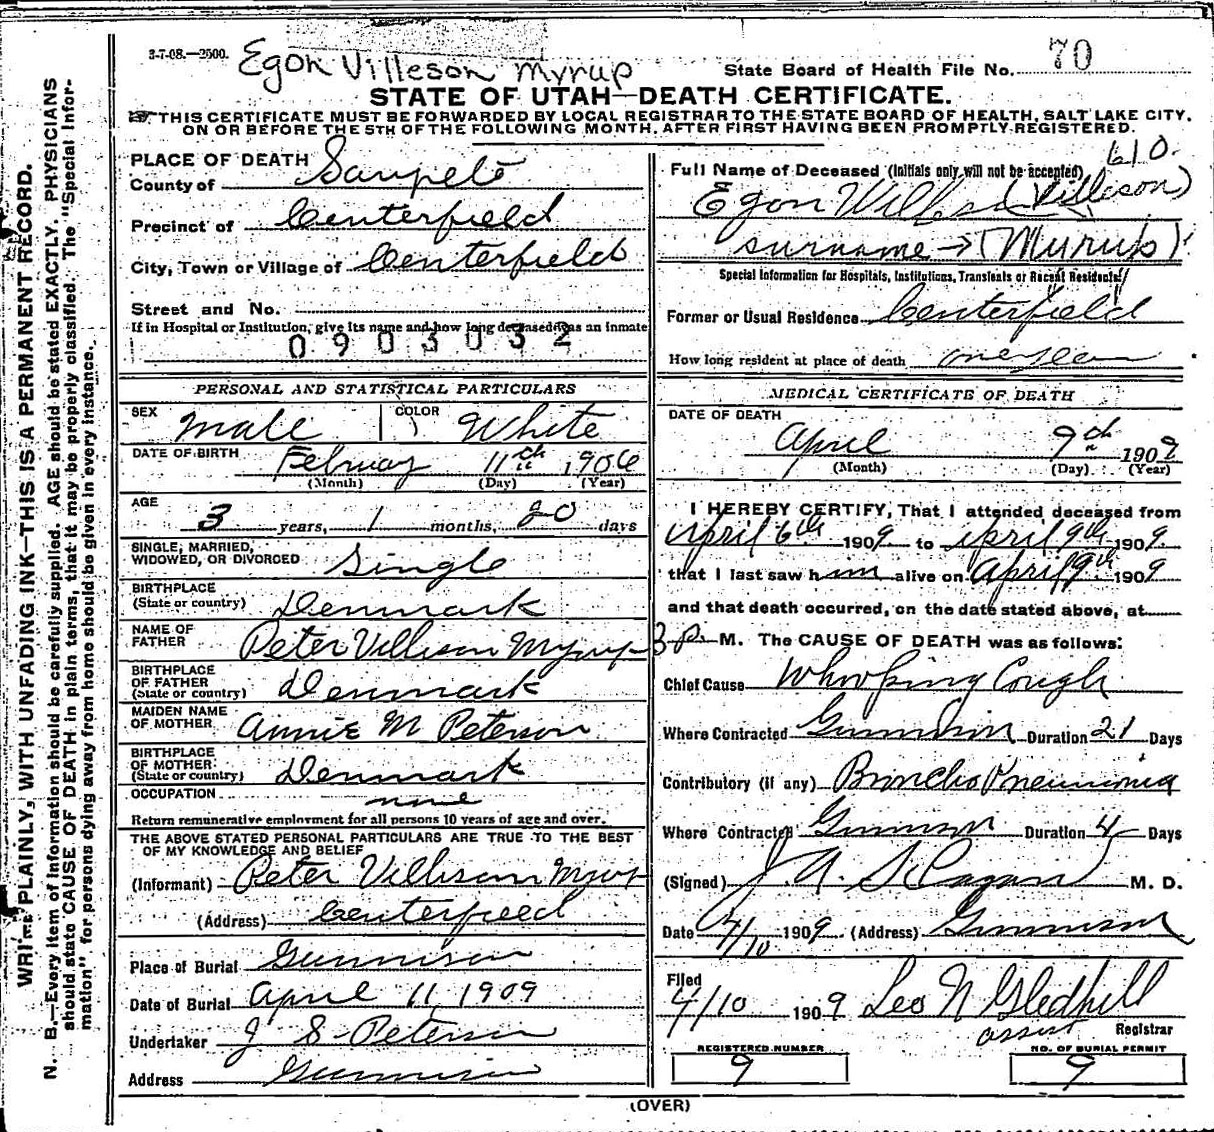 3-7-08.—2500.
Egon Villeson Myrup
State Board of Health File No. 70
STATE OF UTAH—DEATH CERTIFICATE.
THIS CERTIFICATE MUST BE FORWARDED BY LOCAL REGISTRAR TO THE STATE BOARD OF HEALTH, SALT LAKE CITY,
ON OR BEFORE THE 5TH OF THE FOLLOWING MONTH, AFTER FIRST HAVING BEEN PROMPTLY REGISTERED.
WRITE PLAINLY, WITH UNFADING INK—THIS IS A PERMANENT RECORD.
N. B.—Every item of information should be carefully supplied. AGE should be stated EXACTLY. PHYSICIANS
should state CAUSE OF DEATH in plain terms, that it may be properly classified. The "Special Infor-
mation" for persons dying away from home should be given in every instance.
PLACE OF DEATH
County of Sanpete
Precinct of Centerfield
City, Town or Village of Centerfield
Street and No.
If in Hospital or Institution, give its name and how long deceased was an inmate
0903032
PERSONAL AND STATISTICAL PARTICULARS
SEX Male COLOR White
DATE OF BIRTH February 11th 1906
(Month) (Day) (Year)
AGE 3 years, 1 months, 20 days
SINGLE, MARRIED,
WIDOWED, OR DIVORCED Single
BIRTHPLACE
(State or country) Denmark
NAME OF
FATHER Peter Villison Myrup
BIRTHPLACE
OF FATHER
(State or country) Denmark
MAIDEN NAME
OF MOTHER Annie M Peterson
BIRTHPLACE
OF MOTHER
(State or country) Denmark
OCCUPATION none
Return remunerative employment for all persons 10 years of age and over.
THE ABOVE STATED PERSONAL PARTICULARS ARE TRUE TO THE BEST
OF MY KNOWLEDGE AND BELIEF
(Informant) Peter Villison Myrup
(Address) Centerfield
Place of Burial Gunnison
Date of Burial April 11, 1909
Undertaker J S Peterson
Address Gunnison
610.
Full Name of Deceased (Initials only will not be accepted)
Egon (Villeson)
surname → (Myrup)
Special Information for Hospitals, Institutions, Transients or Recent Residents
Former or Usual Residence Centerfield
How long resident at place of death one year
MEDICAL CERTIFICATE OF DEATH
DATE OF DEATH
April 9th 1909
(Month) (Day) (Year)
I HEREBY CERTIFY, That I attended deceased from
April 6th 1909 to April 9th 1909
that I last saw him alive on April 9th 1909
and that death occurred, on the date stated above, at
3 p. M. The CAUSE OF DEATH was as follows:
Chief Cause Whooping Cough
Where Contracted Gunnison Duration 21 Days
Contributory (if any) Broncho Pneumonia
Where Contracted Gunnison Duration 4 Days
(Signed) J. A. M. D.
Date 4/10 1909. (Address) Gunnison
Filed
4/10 1909 Leo N Gledhill
assist Registrar
REGISTERED NUMBER
9
NO. OF BURIAL PERMIT
9
(OVER)